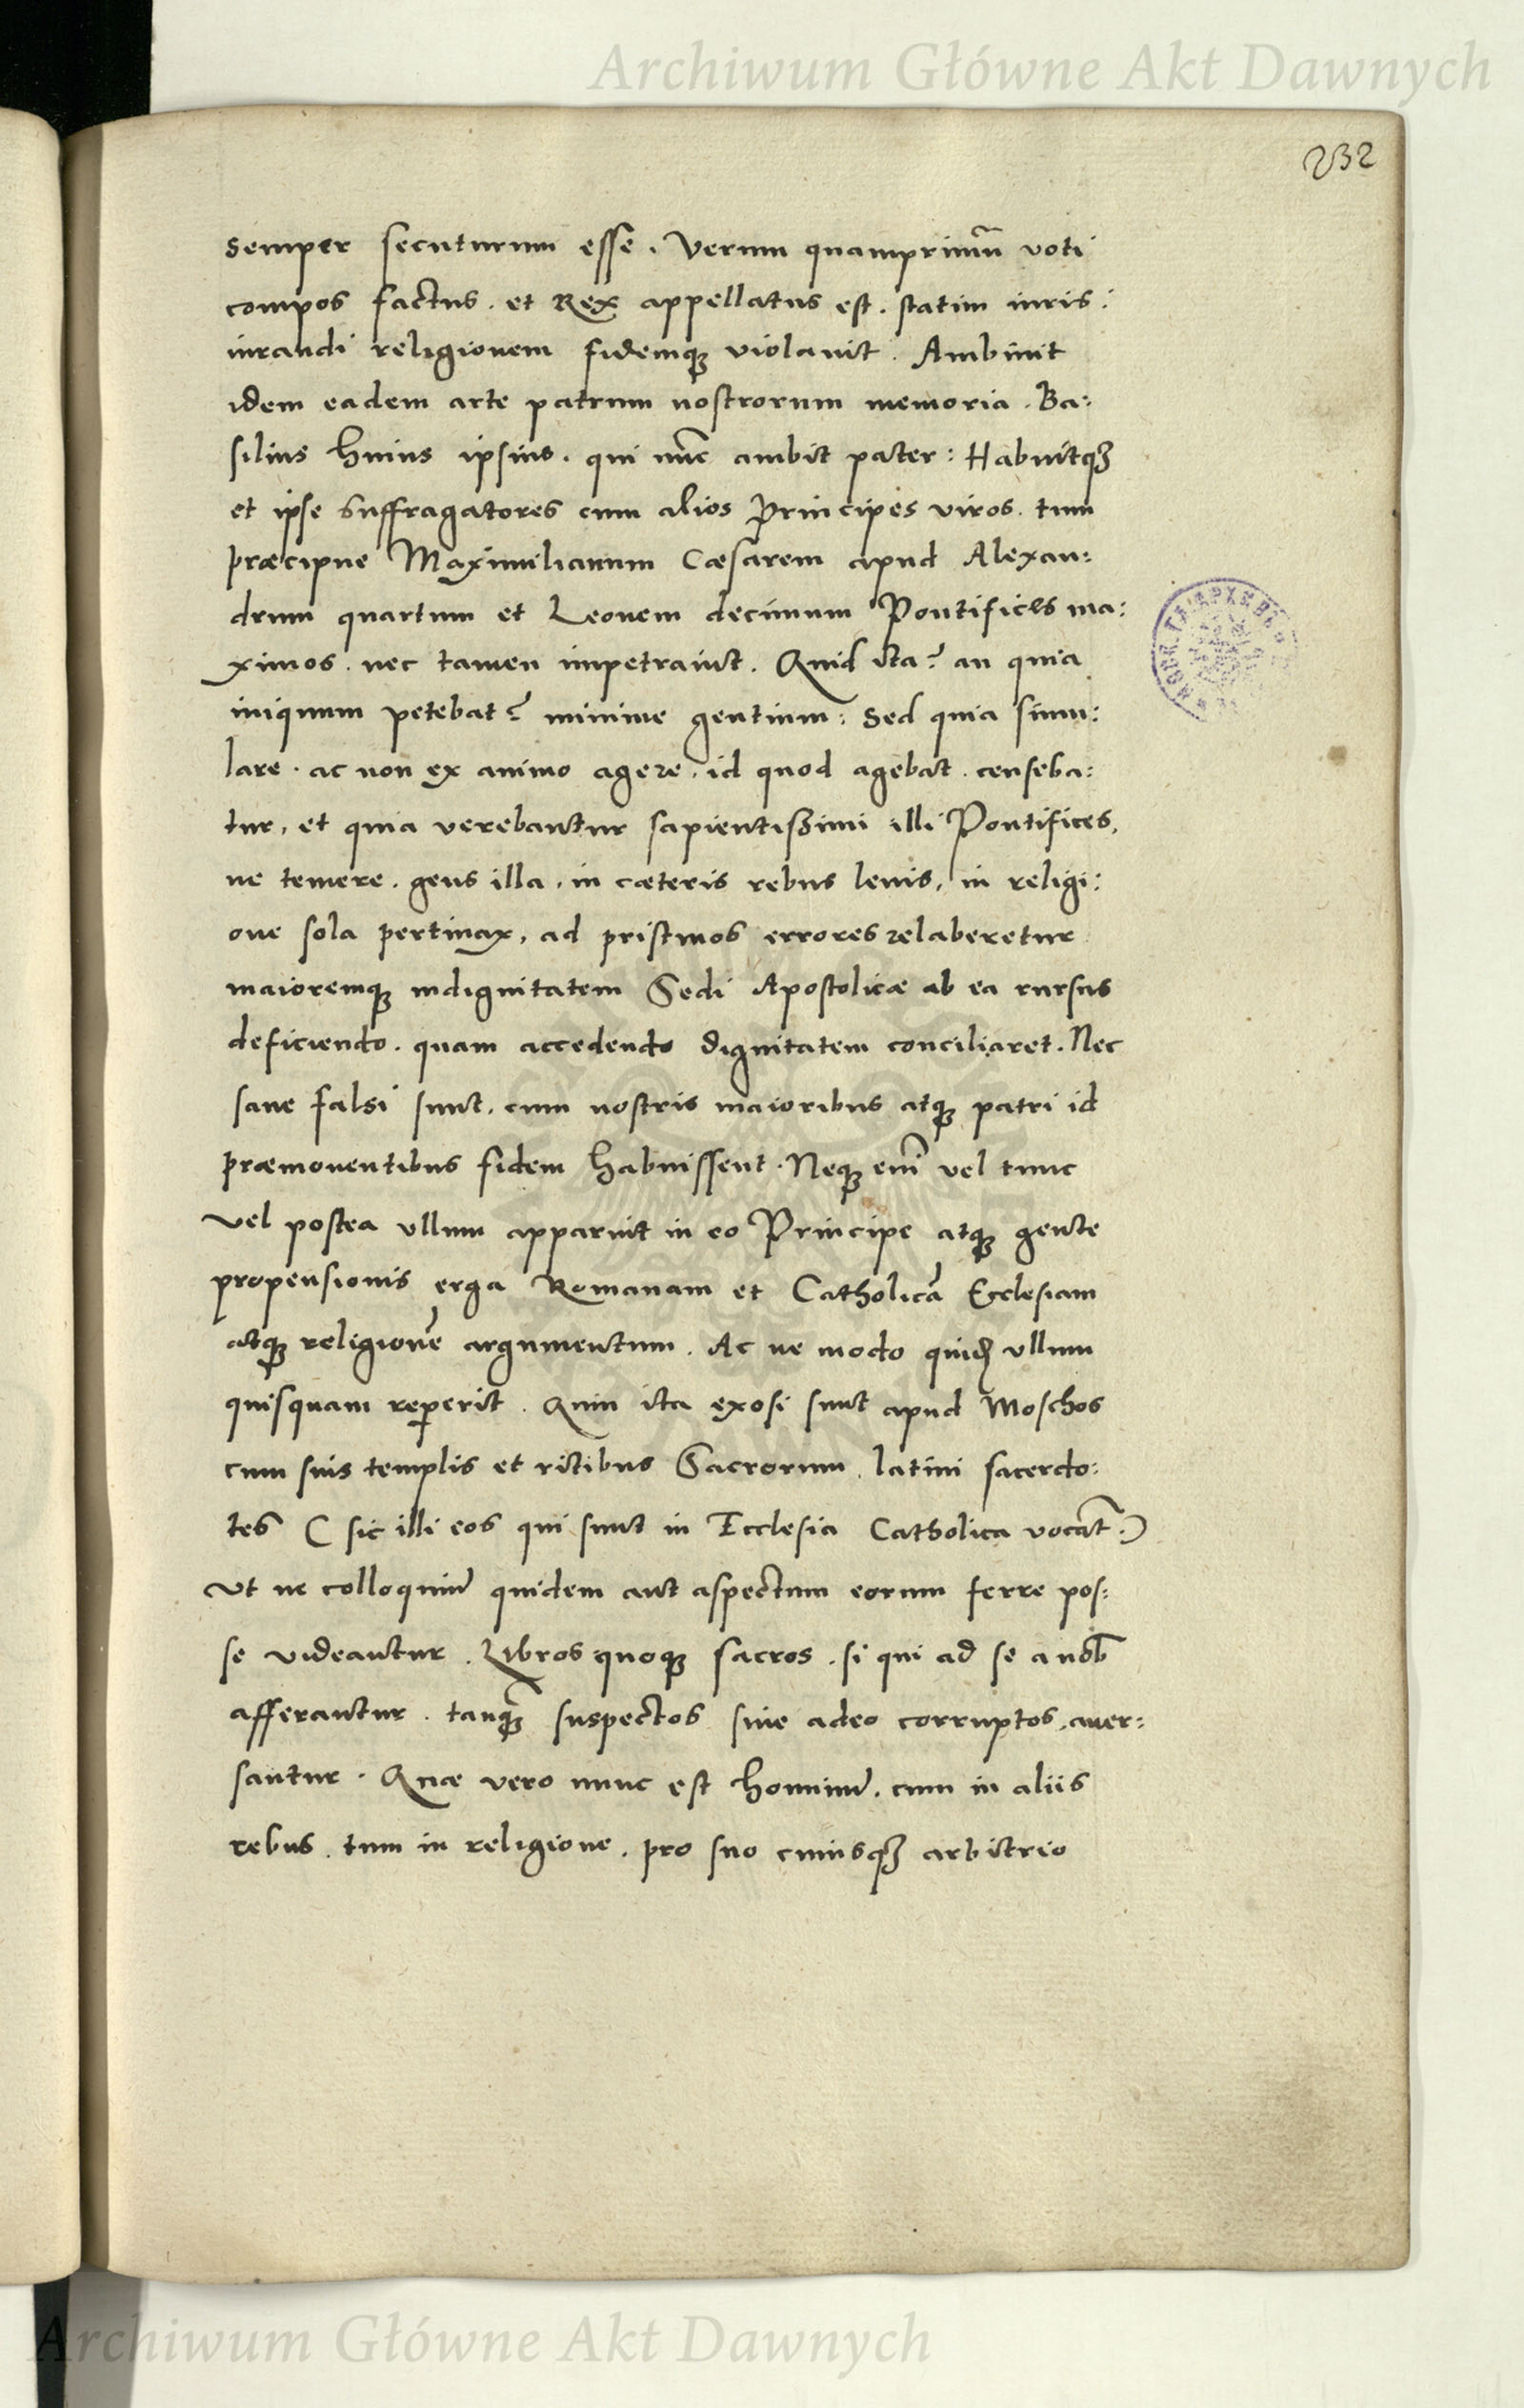 Archiwum Główne Akt Dawnych
232
semper secuturum esse. Verum quamprimũ voti
compos factus. et Rex appellatus est. statim iuris:
iurandi religionem fidemqȝ violavit. Ambiuit
idem eadem arte patrum nostrorum memoria. Ba:
silius huius ipsius. qui nũc ambit pater: Habuitqȝ
et ipse suffragatores cum alios Principes viros. tum
præcipue Maximilianum Cæsarem apud Alexan:
drum quartum et Leonem decimum Pontifices ma:
ximos. nec tamen impetrauit. Quid ita? an quia
iniquum petebat? minime gentium: sed quia simu:
lare. ac non ex animo agere. id quod agebat. censeba:
tur, et quia verebantur sapientißimi illi Pontifices,
ne temere. gens illa. in cæteris rebus leuis, in religi:
one sola pertinax, ad pristinos errores relaberetur
maioremqȝ indignitatem Sedi Apostolicæ ab ea rursus
deficiendo. quam accedendo dignitatem conciliaret. Nec
sane falsi sunt. cum nostris maioribus atqȝ patri id
præmonentibus fidem habuissent. Neqȝ enĩ vel tunc
vel postea vllum apparuit in eo Principe atqȝ gente
propensionis erga Romanam et Catholicã Ecclesiam
atqȝ religionẽ argumentum. Ac ne modo quidẽ vllum
quisquam reperit. Quin ita exosi sunt apud Moschos
cum suis templis et ritibus Sacrorum latini sacerdo:
tes (sic illi eos qui sunt in Ecclesia Catholica vocãt:)
Vt ne colloquiũ quidem aut aspectum eorum ferre pos:
se videantur. Libros quoqȝ sacros. si qui ad se a nob̃
afferantur. tanqȝ̃ suspectos siue adeo corruptos, auer:
santur. Quæ vero nunc est hominũ. cum in aliis
rebus. tum in religione. pro suo cuiusqȝ arbitrio
Archiwum Główne Akt Dawnych